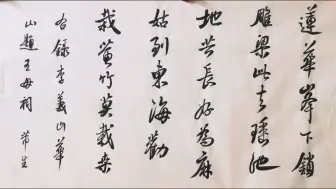 蓮華峯下鎖
雕梁此去瑤池
地共長好為麻
姑到東海勸
栽黃竹莫栽桑
右錄李義山華
山題王母祠